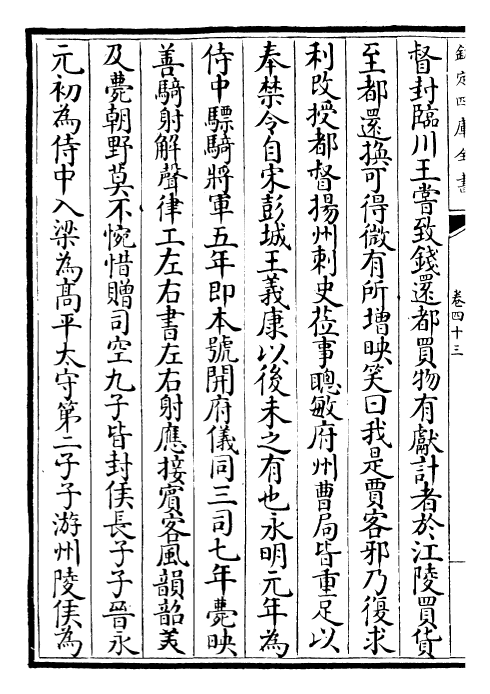 欽定四庫全書
卷四十三
督封臨川王嘗致錢還都買物有獻計者於江陵買貨
至都還換可得微有所增映笑曰我是賈客邪乃復求
利改授都督揚州刺史莅事聰敏府州曹局皆重足以
奉禁令自宋彭城王義康以後未之有也永明元年為
侍中驃騎將軍五年即本號開府儀同三司七年薨映
善騎射解聲律工左右書左右射應接賓客風韻韶美
及薨朝野莫不惋惜贈司空九子皆封侯長子子晉永
元初為侍中入梁為髙平太守第二子子游州陵侯為